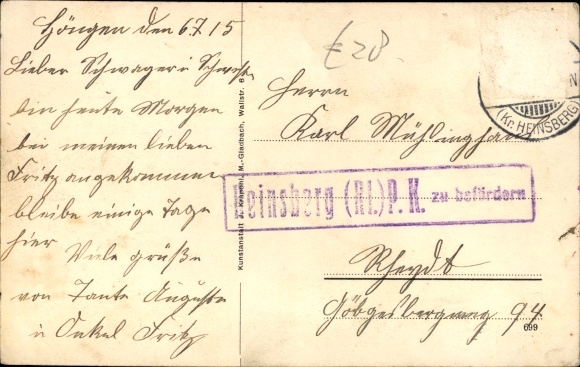 Höngen den 6.7.15
Lieber Schwager u Schwester
bin heute Morgen
bei meinen lieben
Fritz angekommen
bleibe einige Tage
hier Viele grüße
von Tante Auguste
u Onkel Fritz
Kunstanstalt J. M.-Gladbach, Wallstr.
£28.
Herrn
Karl Mühlinghaus
Heinsberg (Rl.) P. K. zu befördern
Rheydt
94
699
(Kr. HEINSBERG)